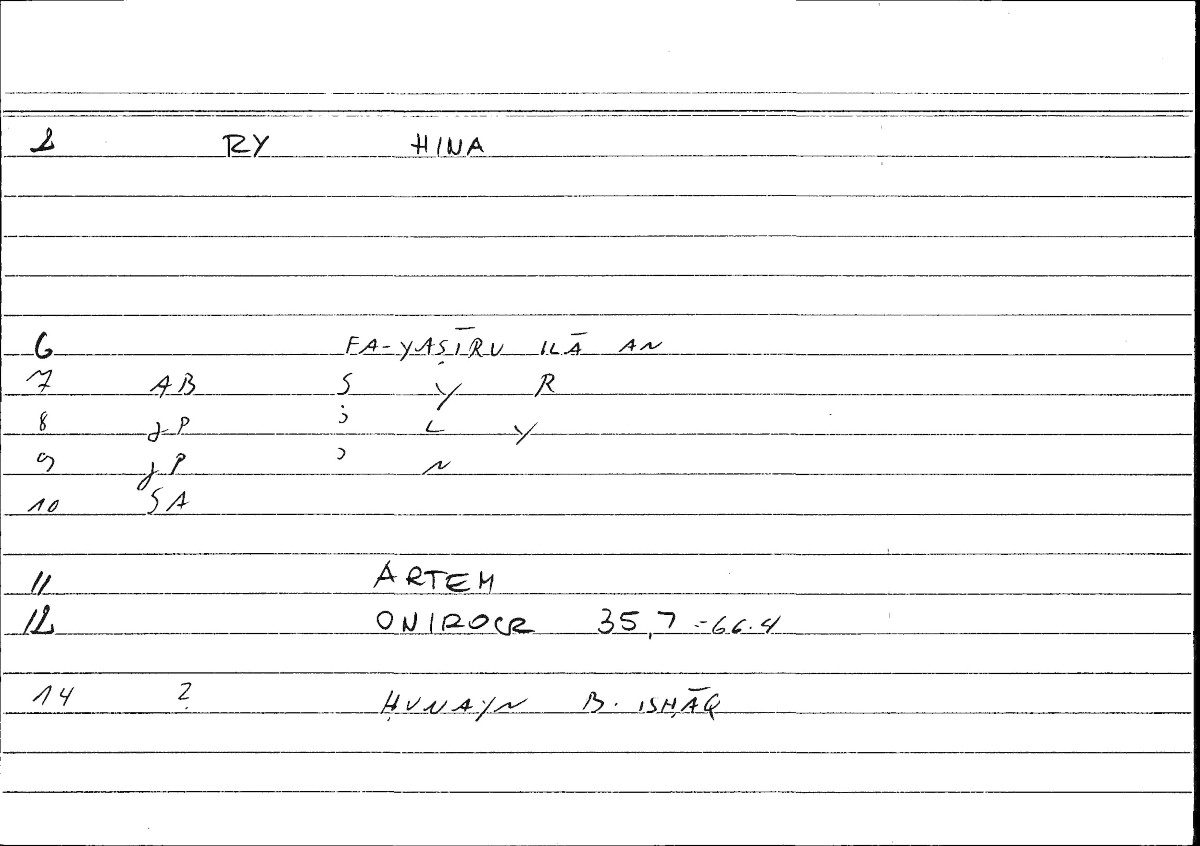 2 RY HINA
6 FA-YAṢĪRU ILĀ AN
7 AB S Y R
8 gP ʾ L Y
9 gP ʾ N
10 SA
11 ARTEM
12 ONIROCR 35,7 = 66.4
14 ? ḤUNAYN B. ISḤĀQ